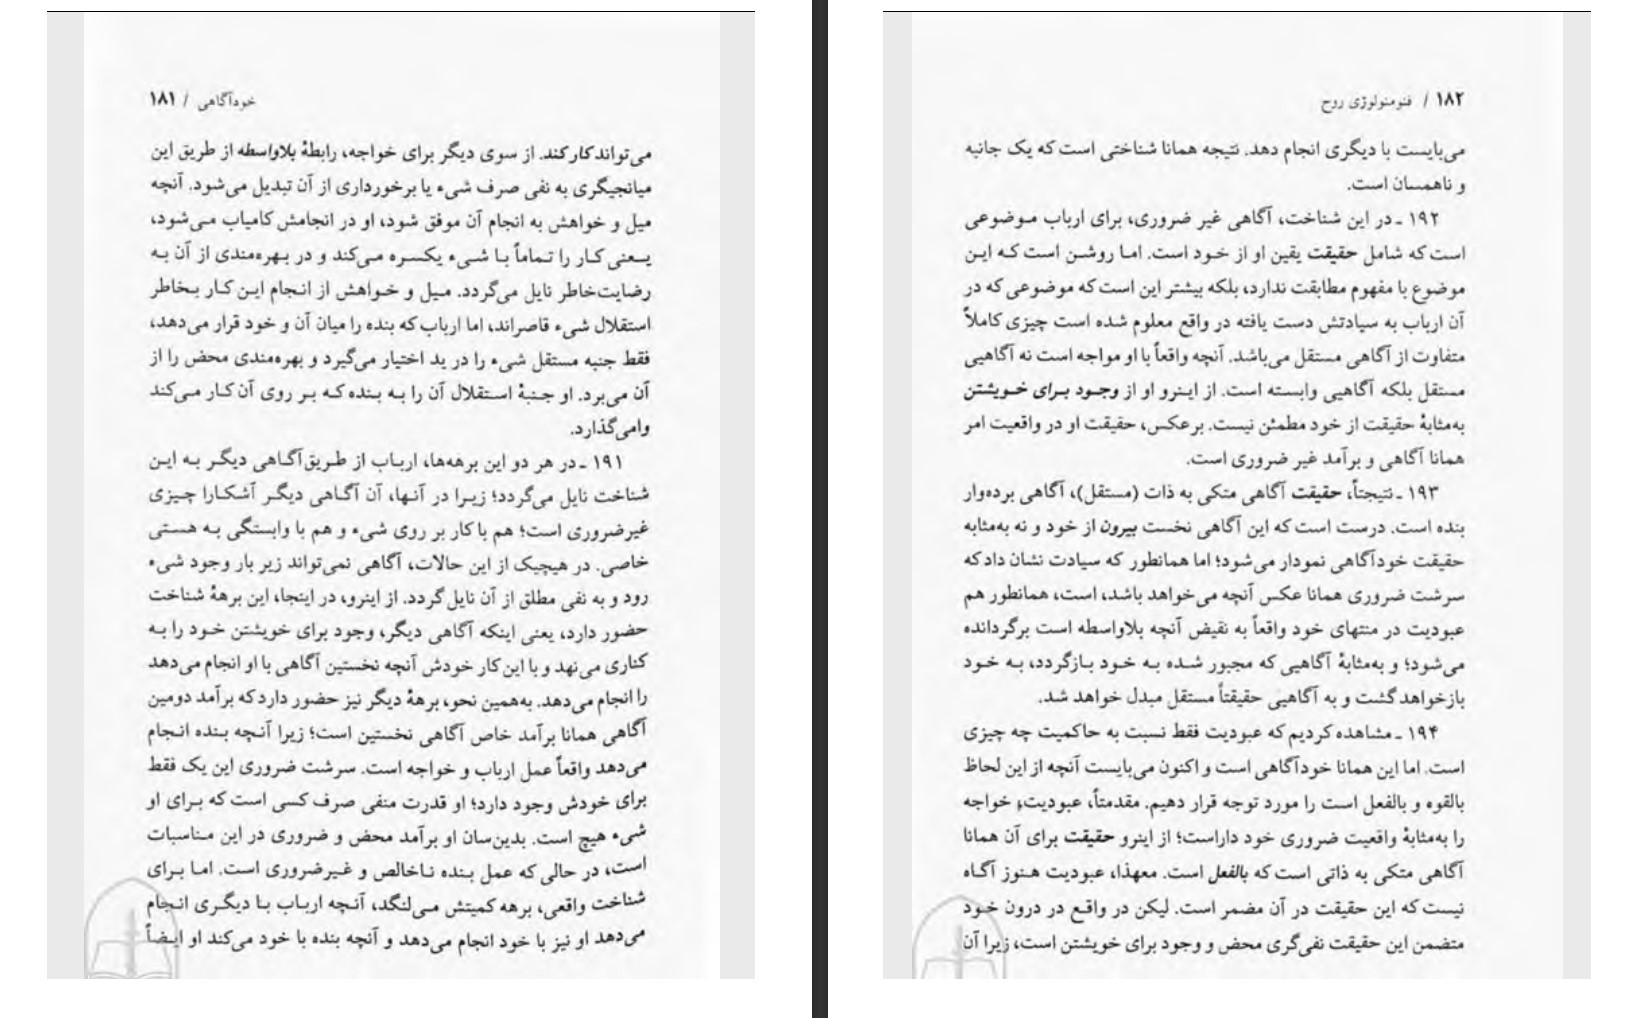 خودآگاهی / ۱۸۱
می‌تواند کار کند. از سوی دیگر برای خواجه، رابطهٔ بلاواسطه از طریق این
میانجیگری به نفی صرف شیء یا برخورداری از آن تبدیل می‌شود. آنچه
میل و خواهش به انجام آن موفق نشود، او در انجامش کامیاب می‌شود،
یعنی کار را تماماً با شیء یکسره می‌کند و در بهره‌مندی از آن به
رضایت‌خاطر نایل می‌گردد. میل و خواهش از انجام این کار بخاطر
استقلال شیء قاصراند، اما ارباب که بنده را میان آن و خود قرار می‌دهد،
فقط جنبه مستقل شیء را در ید اختیار می‌گیرد و بهره‌مندی محض را از
آن می‌برد. او جنبهٔ استقلال آن را به بنده که بر روی آن کار می‌کند
وامی‌گذارد.
۱۹۱ ـ در هر دو این برهه‌ها، ارباب از طریق آگاهی دیگر به این
شناخت نایل می‌گردد؛ زیرا در آنها، آن آگاهی دیگر آشکارا چیزی
غیرضروری است؛ هم با کار بر روی شیء و هم با وابستگی به هستی
خاصی. در هیچیک از این حالات، آگاهی نمی‌تواند زیر بار وجود شیء
رود و به نفی مطلق از آن نایل گردد. از اینرو، در اینجا، این برههٔ شناخت
حضور دارد، یعنی اینکه آگاهی دیگر، وجود برای خویشتن خود را به
کناری می‌نهد و با این کار خودش آنچه نخستین آگاهی با او انجام می‌دهد
را انجام می‌دهد. به‌همین نحو، برههٔ دیگر نیز حضور دارد که برآمد دومین
آگاهی همانا برآمد خاص آگاهی نخستین است؛ زیرا آنچه بنده انجام
می‌دهد واقعاً عمل ارباب و خواجه است. سرشت ضروری این یک فقط
برای خودش وجود دارد؛ او قدرت منفی صرف کسی است که برای او
شیء هیچ است. بدین‌سان او برآمد محض و ضروری در این مناسبات
است، در حالی که عمل بنده ناخالص و غیرضروری است. اما برای
شناخت واقعی، برهه کمیتش می‌لنگد، آنچه ارباب با دیگری انجام
می‌دهد او نیز با خود انجام می‌دهد و آنچه بنده با خود می‌کند او ایضاً
۱۸۲ / فنومنولوژی روح
می‌بایست با دیگری انجام دهد. نتیجه همانا شناختی است که یک جانبه
و ناهمسان است.
۱۹۲ ـ در این شناخت، آگاهی غیر ضروری، برای ارباب موضوعی
است که شامل حقیقت یقین او از خود است. اما روشن است که این
موضوع با مفهوم مطابقت ندارد، بلکه بیشتر این است که موضوعی که در
آن ارباب به سیادتش دست یافته در واقع معلوم شده است چیزی کاملاً
متفاوت از آگاهی مستقل می‌باشد. آنچه واقعاً با او مواجه است نه آگاهیی
مستقل بلکه آگاهیی وابسته است. از اینرو او از وجود برای خویشتن
به‌مثابهٔ حقیقت از خود مطمئن نیست. برعکس، حقیقت او در واقعیت امر
همانا آگاهی و برآمد غیر ضروری است.
۱۹۳ ـ نتیجتاً، حقیقت آگاهی متکی به ذات (مستقل)، آگاهی برده‌وار
بنده است. درست است که این آگاهی نخست بیرون از خود و نه به‌مثابه
حقیقت خودآگاهی نمودار می‌شود؛ اما همانطور که سیادت نشان داد که
سرشت ضروری همانا عکس آنچه می‌خواهد باشد، است، همانطور هم
عبودیت در منتهای خود واقعاً به نقیض آنچه بلاواسطه است برگردانده
می‌شود؛ و به‌مثابهٔ آگاهیی که مجبور شده به خود بازگردد، به خود
بازخواهد گشت و به آگاهیی حقیقتاً مستقل مبدل خواهد شد.
۱۹۴ ـ مشاهده کردیم که عبودیت فقط نسبت به حاکمیت چه چیزی
است. اما این همانا خودآگاهی است و اکنون می‌بایست آنچه از این لحاظ
بالقوه و بالفعل است را مورد توجه قرار دهیم. مقدمتاً، عبودیت، خواجه
را به‌مثابهٔ واقعیت ضروری خود داراست؛ از اینرو حقیقت برای آن همانا
آگاهی متکی به ذاتی است که بالفعل است. معهذا، عبودیت هنوز آگاه
نیست که این حقیقت در آن مضمر است. لیکن در واقع در درون خود
متضمن این حقیقت نفی‌گری محض و وجود برای خویشتن است، زیرا آن